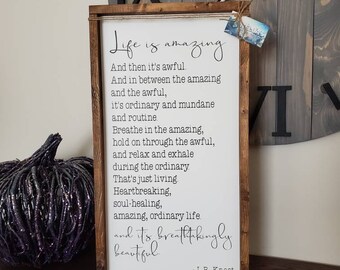 Life is amazing
And then it's awful.
And in between the amazing
and the awful,
it's ordinary and mundane
and routine.
Breathe in the amazing,
hold on through the awful,
and relax and exhale
during the ordinary.
That's just living.
Heartbreaking,
soul-healing,
amazing, ordinary life.
and it's breathtakingly
beautiful.